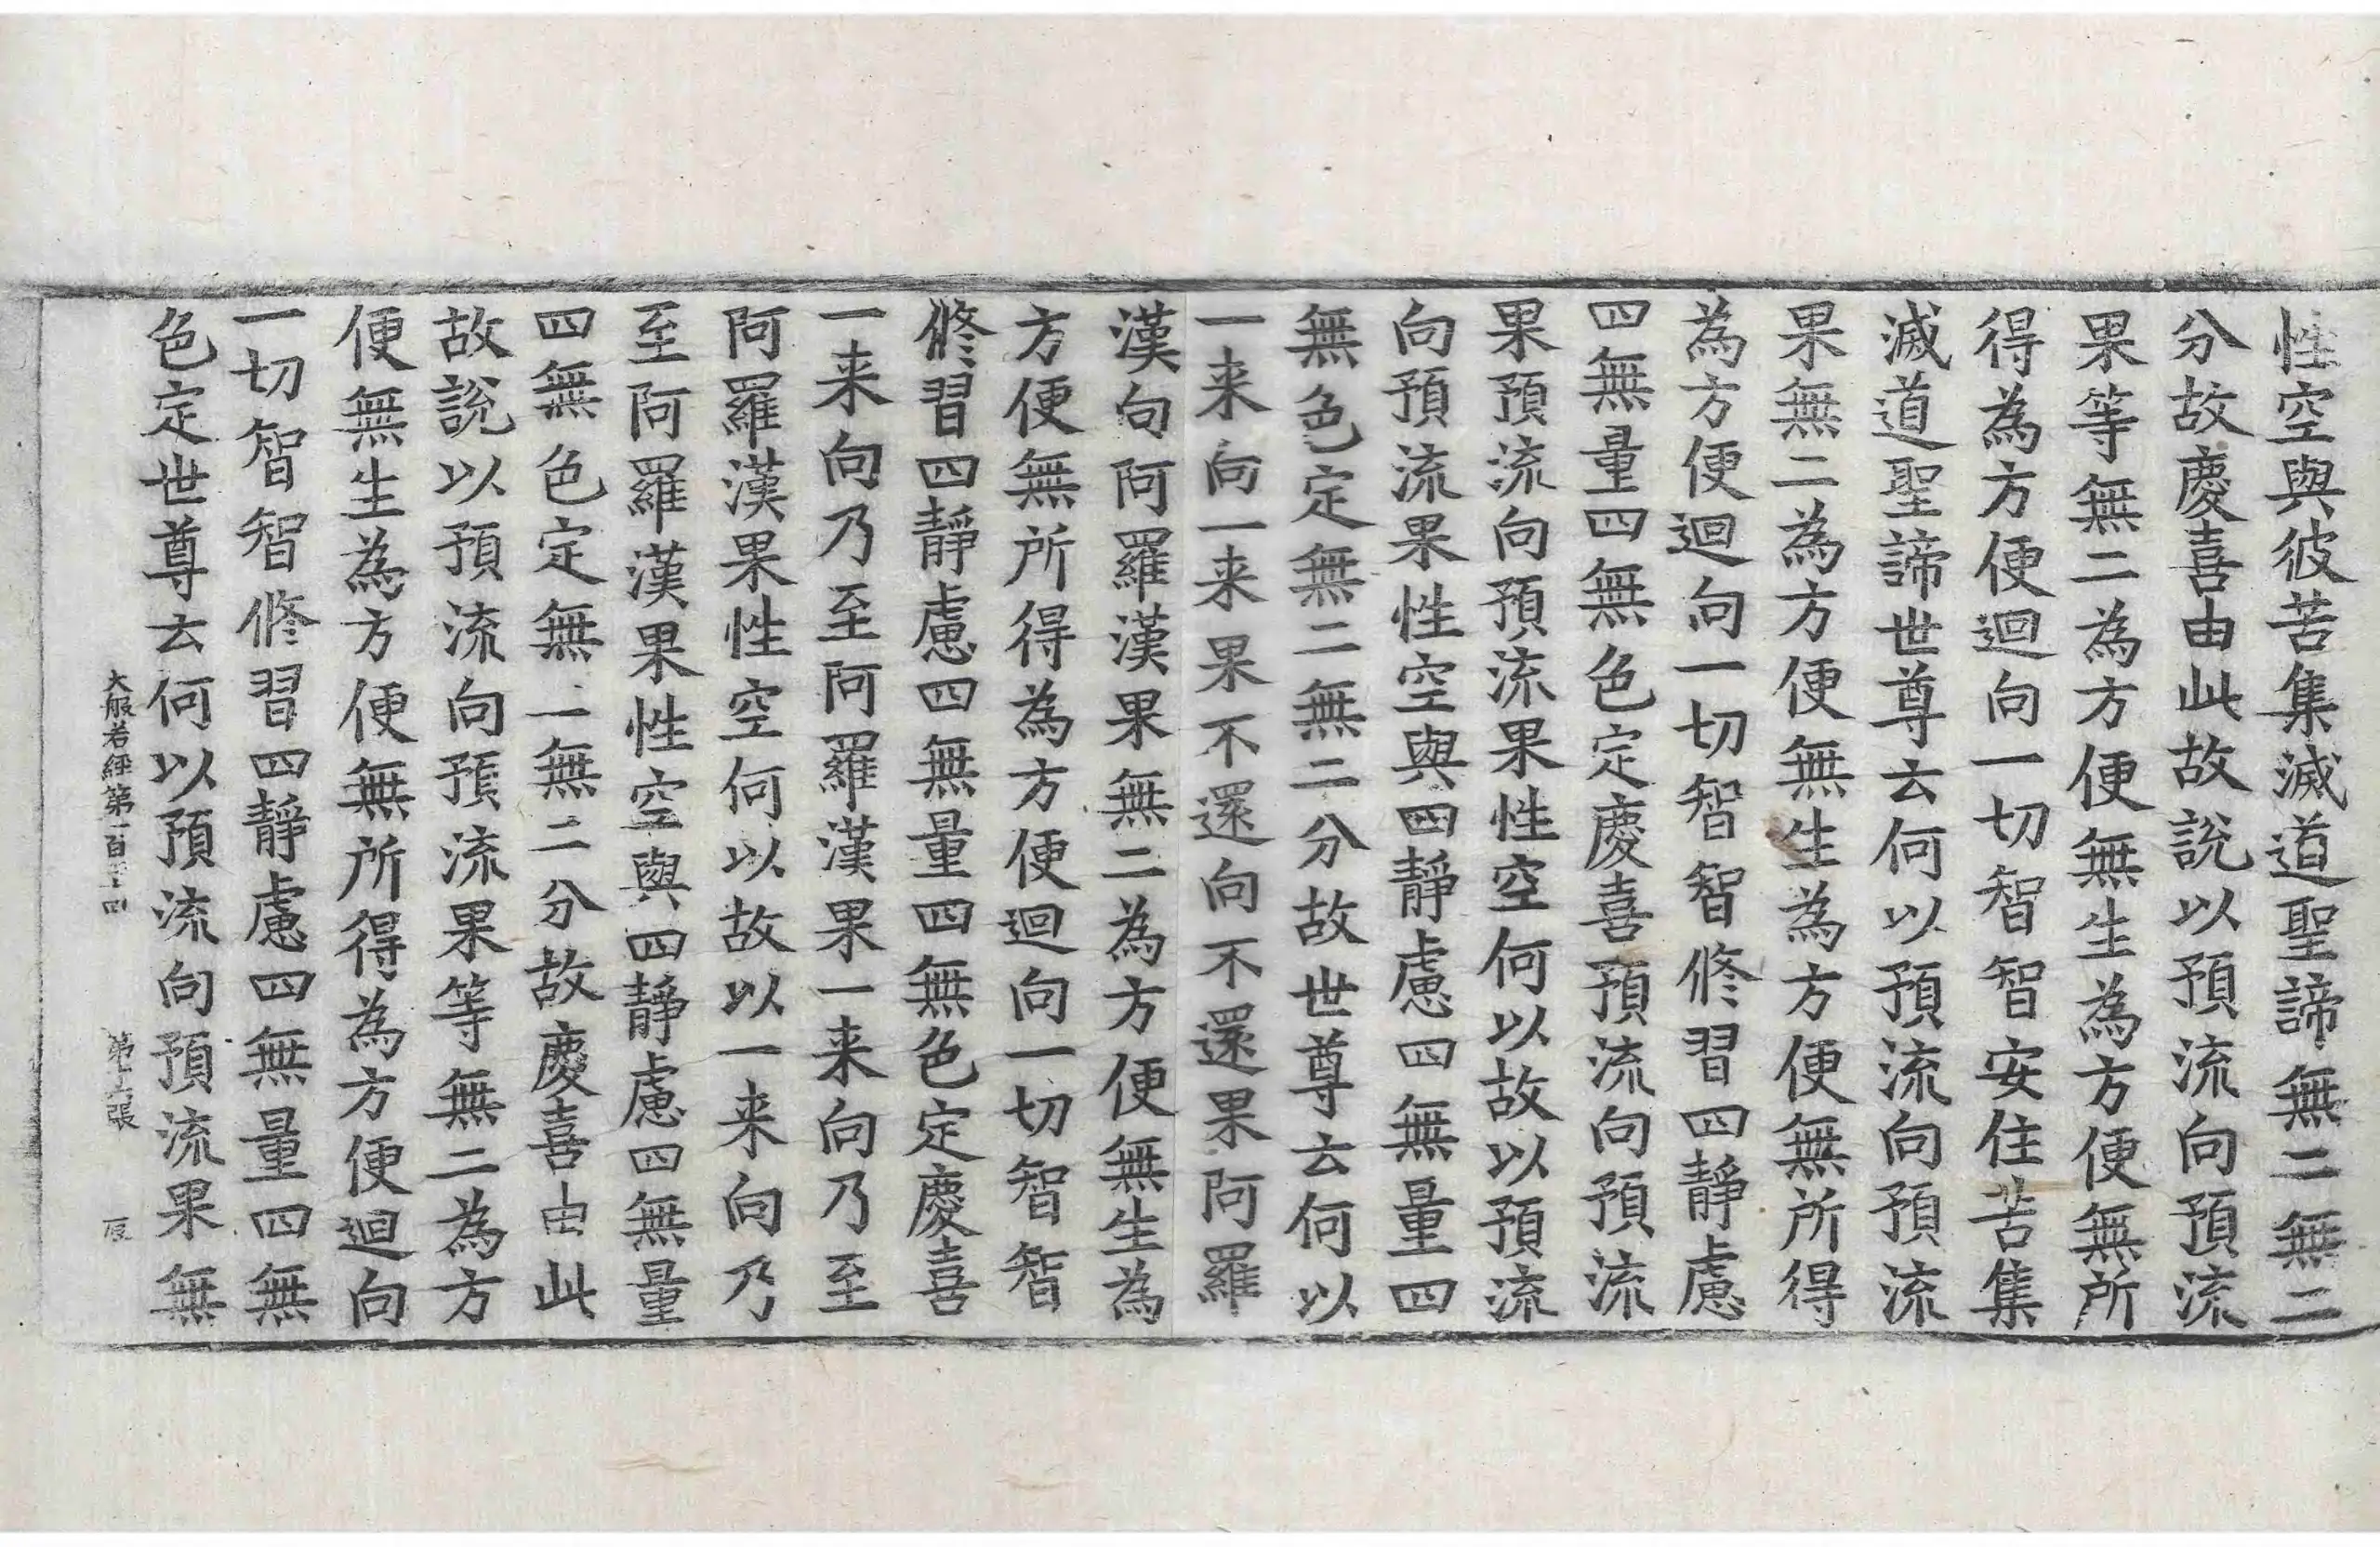 性空與彼苦集滅道聖諦無二無二
分故慶喜由此故說以預流向預流
果等無二為方便無生為方便無所
得為方便迴向一切智智安住苦集
滅道聖諦世尊云何以預流向預流
果無二為方便無生為方便無所得
為方便迴向一切智智修習四靜慮
四無量四無色定慶喜預流向預流
果預流向預流果性空何以故以預流
向預流果性空與四靜慮四無量四
無色定無二無二分故世尊云何以
一来向一来果不還向不還果阿羅
漢向阿羅漢果無二為方便無生為
方便無所得為方便迴向一切智智
修習四靜慮四無量四無色定慶喜
一来向乃至阿羅漢果一来向乃至
阿羅漢果性空何以故以一来向乃
至阿羅漢果性空與四靜慮四無量
四無色定無二無二分故慶喜由此
故說以預流向預流果等無二為方
便無生為方便無所得為方便迴向
一切智智修習四靜慮四無量四無
色定世尊云何以預流向預流果無
大般若經第一百二十四 第六張 辰